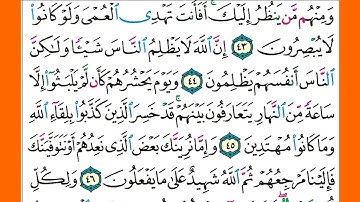 وَمِنْهُم مَّن يَنظُرُ إِلَيْكَ ۚ أَفَأَنتَ تَهْدِى ٱلْعُمْىَ وَلَوْ كَانُوا۟
لَا يُبْصِرُونَ ٤٣ إِنَّ ٱللَّهَ لَا يَظْلِمُ ٱلنَّاسَ شَيْـًٔا وَلَٰكِنَّ
ٱلنَّاسَ أَنفُسَهُمْ يَظْلِمُونَ ٤٤ وَيَوْمَ يَحْشُرُهُمْ كَأَن لَّمْ يَلْبَثُوٓا۟ إِلَّا
سَاعَةً مِّنَ ٱلنَّهَارِ يَتَعَارَفُونَ بَيْنَهُمْ ۚ قَدْ خَسِرَ ٱلَّذِينَ كَذَّبُوا۟ بِلِقَآءِ ٱللَّهِ
وَمَا كَانُوا۟ مُهْتَدِينَ ٤٥ وَإِمَّا نُرِيَنَّكَ بَعْضَ ٱلَّذِى نَعِدُهُمْ أَوْ نَتَوَفَّيَنَّكَ
فَإِلَيْنَا مَرْجِعُهُمْ ثُمَّ ٱللَّهُ شَهِيدٌ عَلَىٰ مَا يَفْعَلُونَ ٤٦ وَلِكُلِّ